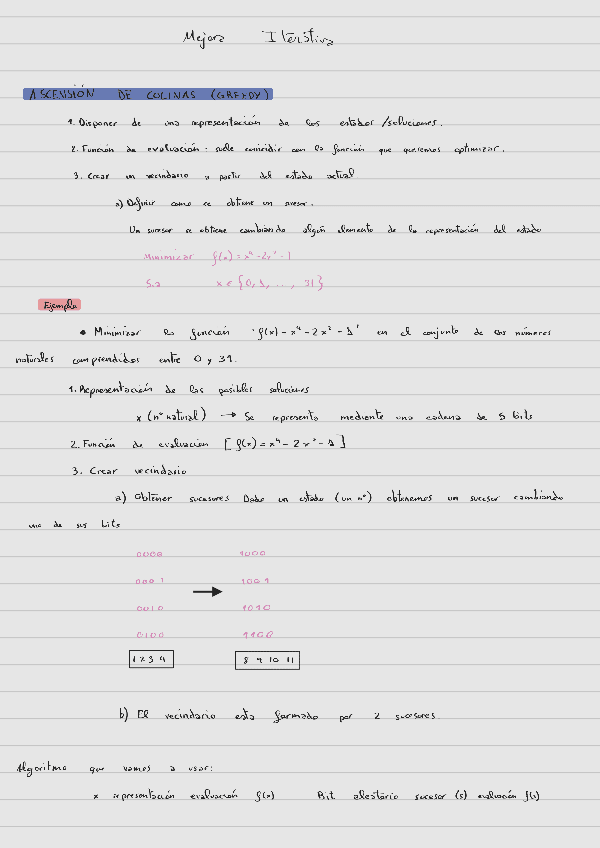 Mejora Iterativa
ASCENSIÓN DE COLINAS (GREEDY)
1. Disponer de una representación de los estados/soluciones.
2. Función de evaluación. suele coincidir con la función que queremos optimizar.
3. Crear un vecindario a partir del estado actual
a) Definir como se obtiene un sucesor.
Un sucesor se obtiene cambiando algún elemento de la representación del estado
Minimizar f(x) = x⁴-2x²-1
S.a x ∈ {0, 1, ..., 31}
Ejemplo
• Minimizar la función 'f(x) = x⁴ - 2x² - 1' en el conjunto de los números
naturales comprendidos entre 0 y 31.
1. Representación de las posibles soluciones
x (nº natural) → Se representa mediante una cadena de 5 bits
2. Función de evaluación [f(x) = x⁴ - 2x² - 1]
3. Crear vecindario
a) Obtener sucesores Dado un estado (un nº) obtenemos un sucesor cambiando
uno de sus bits
0000 1000
0001 → 1001
0010 1010
0100 1100
1 2 3 4 8 9 10 11
b) El vecindario esta formado por 2 sucesores.
Algoritmo que vamos a usar:
x representación evaluación f(x) Bit aleatorio sucesor (s) evaluación f(s)